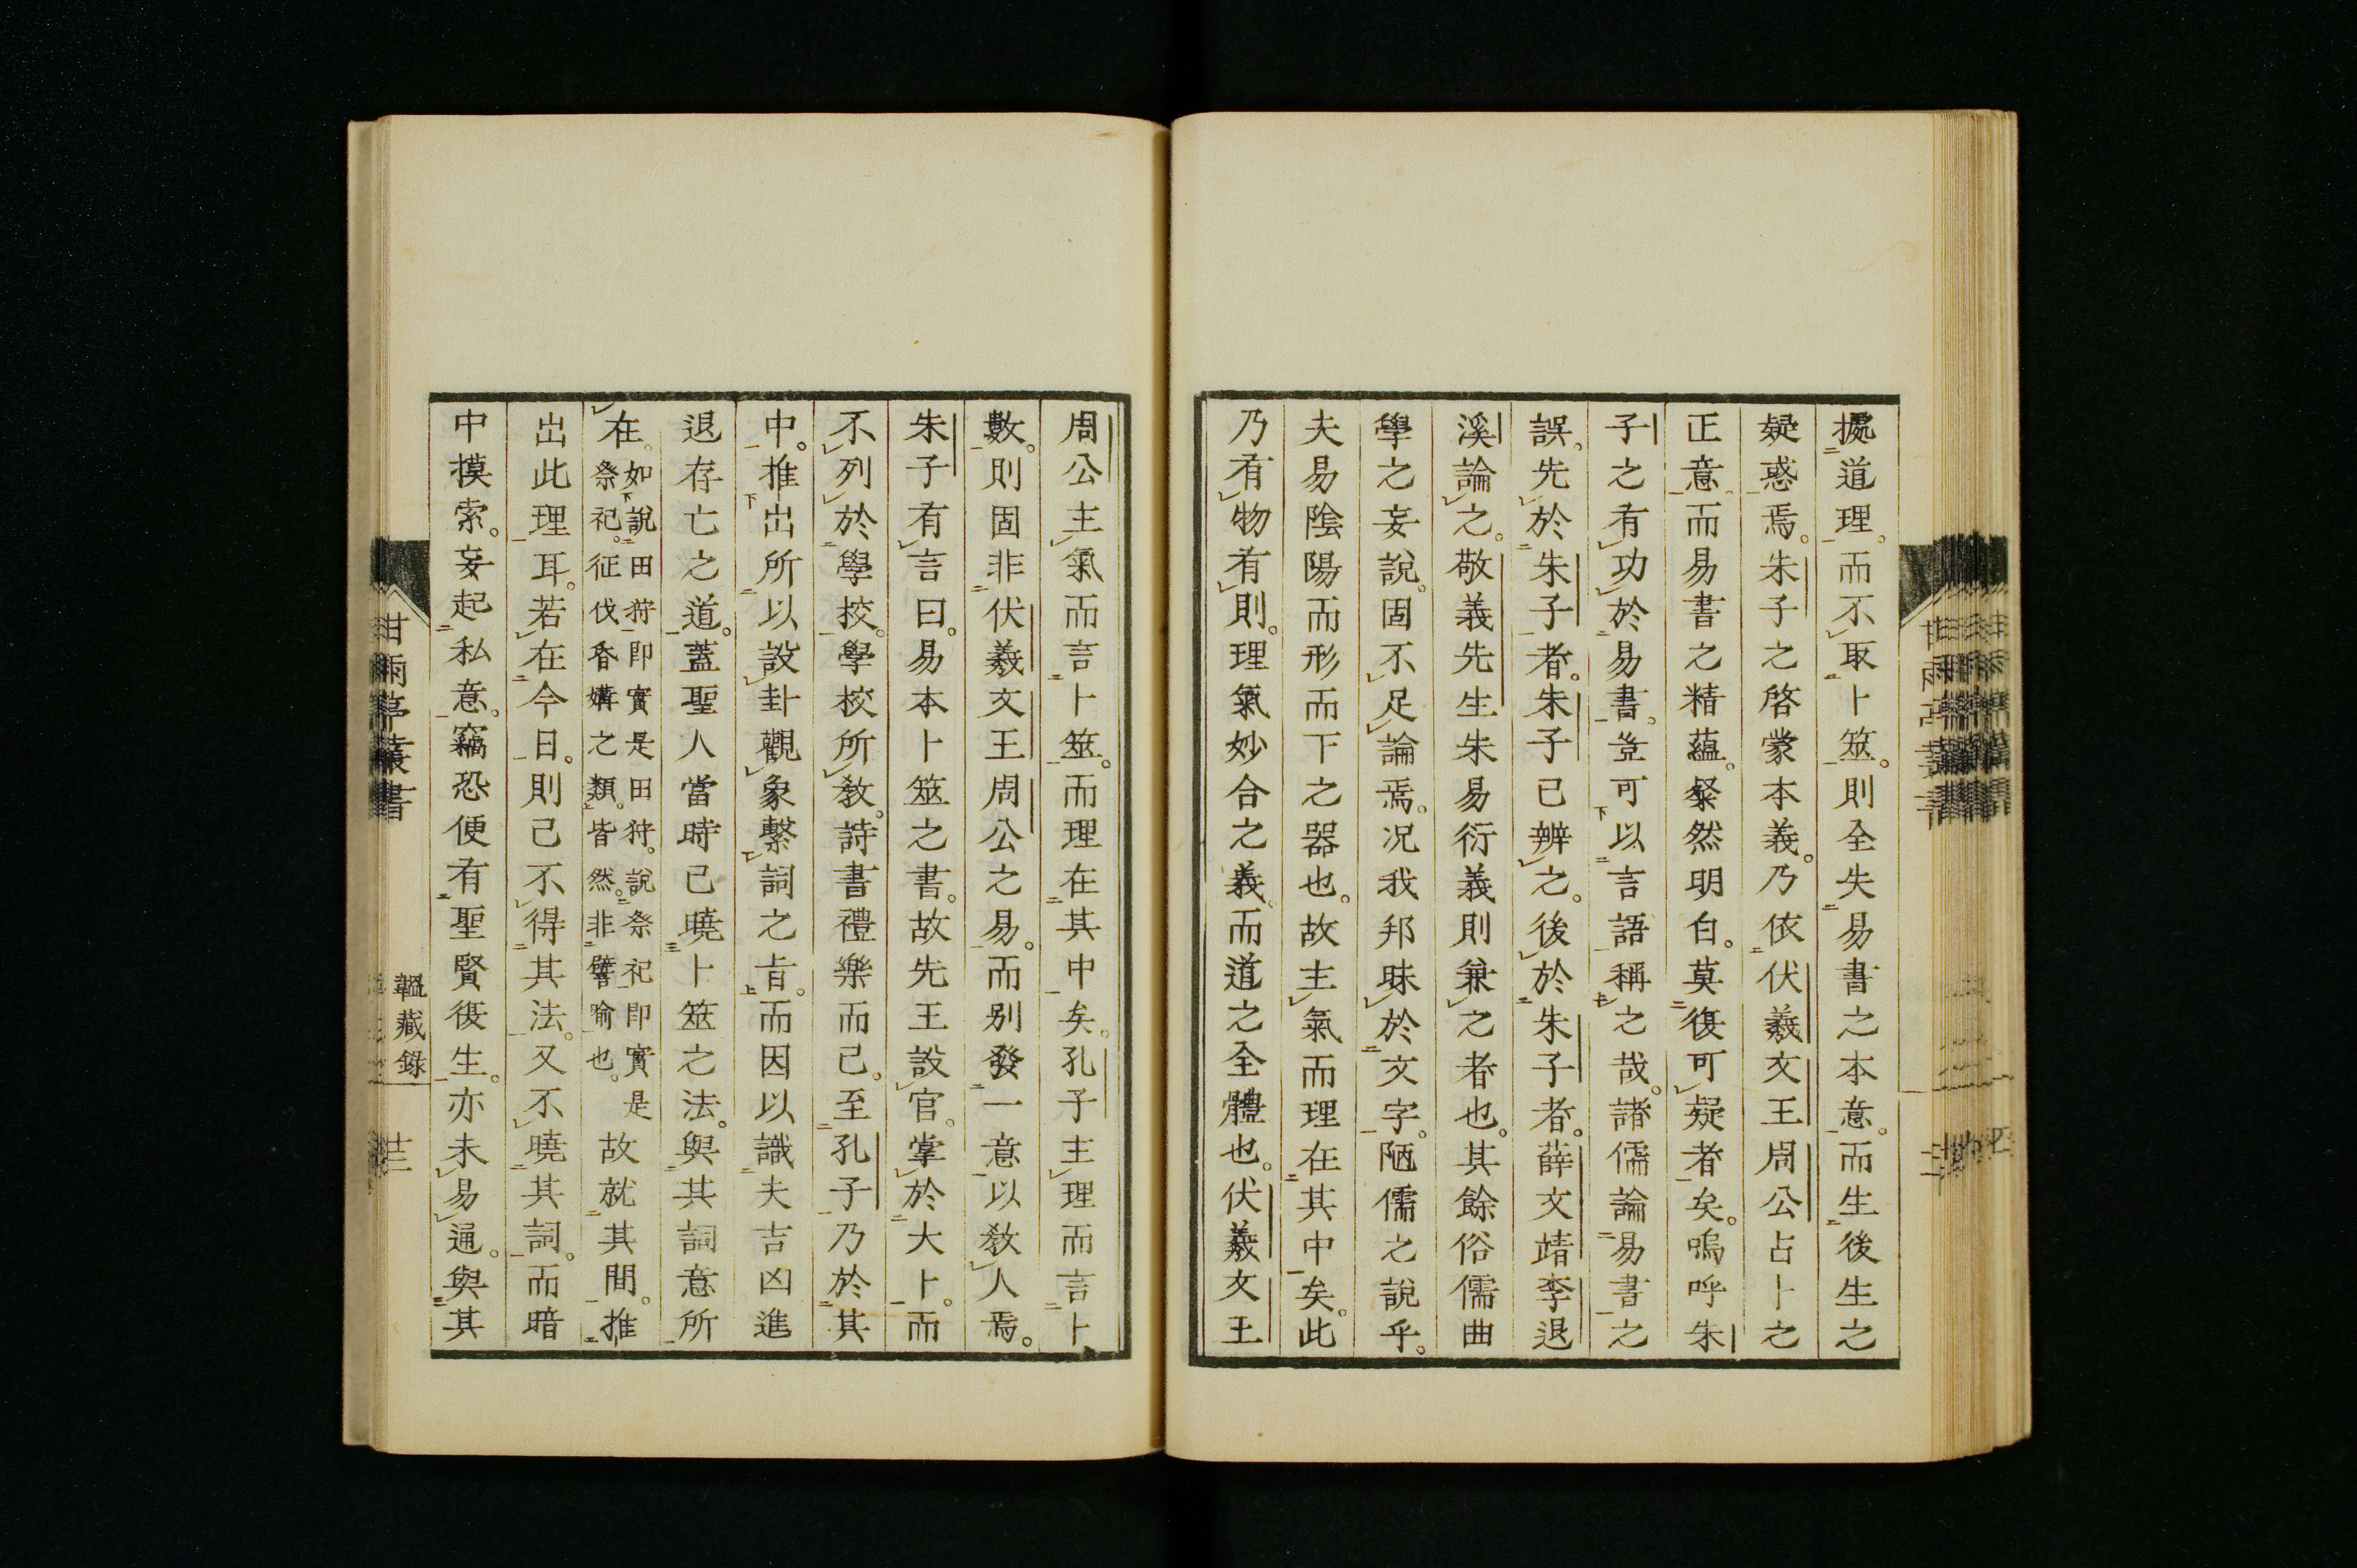 據道理。而不取卜筮。則全失易書之本意。而生後生之
疑惑焉。朱子之啓蒙本義。乃依伏羲文王周公占卜之
正意。而易書之精蘊。粲然明白。莫復可疑者矣。嗚呼朱
子之有功於易書。豈可以言語稱之哉。諸儒論易書之
誤。先於朱子者。朱子已辨之。後於朱子者。薛文靖李退
溪論之。敬義先生朱易衍義則兼之者也。其餘俗儒曲
學之妄說。固不足論焉。况我邦昧於文字。陋儒之說乎。
夫易陰陽而形而下之器也。故主氣而理在其中矣。此
乃有物有則。理氣妙合之義。而道之全體也。伏羲文王
周公主氣而言卜筮。而理在其中矣。孔子主理而言卜
數。則固非伏羲文王周公之易。而別發一意以敎人焉。
朱子有言曰。易本卜筮之書。故先王設官。掌於大卜。而
不列於學校。學校所敎。詩書禮樂而已。至孔子乃於其
中。推出所以設卦觀象繫詞之旨。而因以識夫吉凶進
退存亡之道。蓋聖人當時已曉卜筮之法。與其詞意所
在。如說田狩即實是田狩。說祭祀即實是
祭祀。征伐昏媾之類。皆然。非譬喻也。
故就其間。推
出此理耳。若在今日。則已不得其法。又不曉其詞。而暗
中摸索。妄起私意。竊恐便有聖賢復生。亦未易通。與其
甘雨亭叢書
韞藏錄